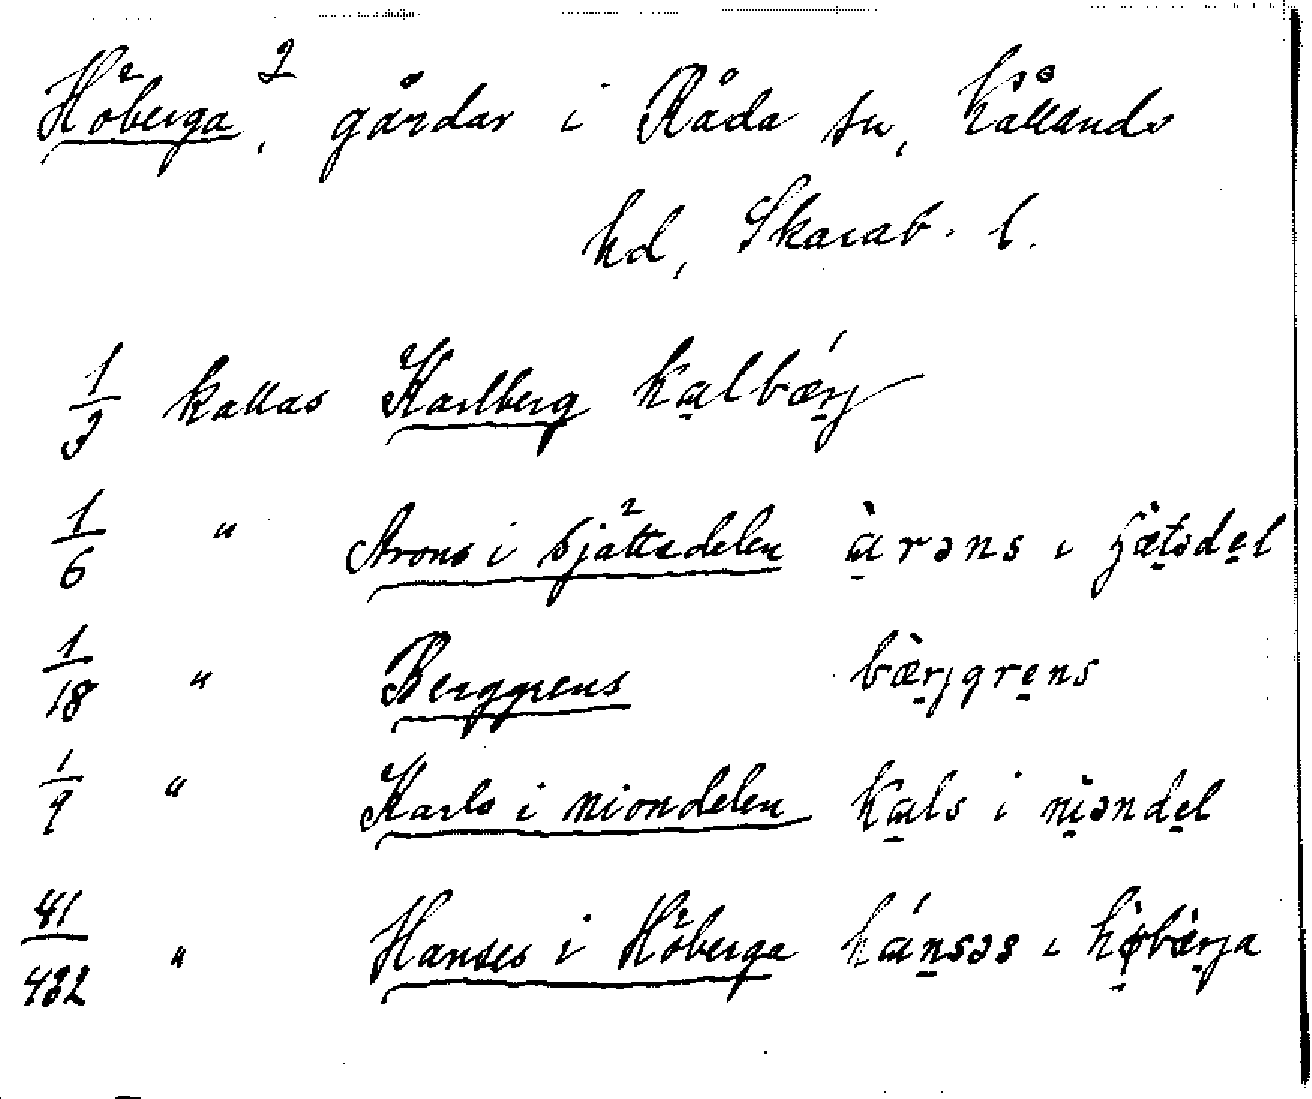 Höberga, 2 gårdar i Råda sn, Kållands
hd, Skarab. l.
1/3 kallas Karlberg kalbǽrj
1/6 " Arons i Sjättedelen àrəns i ʃæ̀tədel
1/18 " Berggrens bæ̀rjgrens
1/9 " Karls i niondelen kals i nìəndel
41/432 " Hanses i Höberga hánsəs i hø̀bæ̀rja